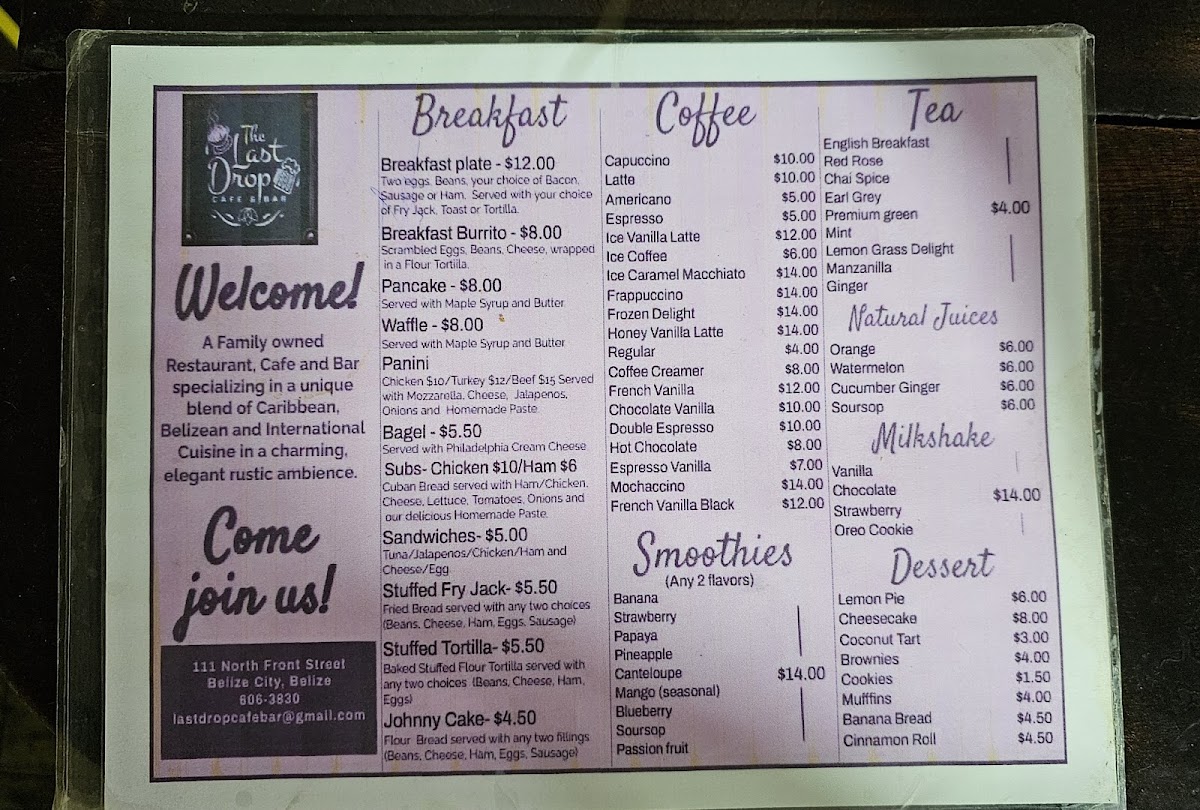 The
Last
Drop
CAFE & BAR
Welcome!
A Family owned
Restaurant, Cafe and Bar
specializing in a unique
blend of Caribbean,
Belizean and International
Cuisine in a charming,
elegant rustic ambience.
Come
join us!
111 North Front Street
Belize City, Belize
606-3830
lastdropcafebar@gmail.com
Breakfast
Breakfast plate - $12.00
Two eggs, Beans, your choice of Bacon,
Sausage or Ham. Served with your choice
of Fry Jack, Toast or Tortilla.
Breakfast Burrito - $8.00
Scrambled Eggs, Beans, Cheese, wrapped
in a Flour Tortilla.
Pancake - $8.00
Served with Maple Syrup and Butter
Waffle - $8.00
Served with Maple Syrup and Butter
Panini
Chicken $10/Turkey $12/Beef $15 Served
with Mozzarella, Cheese, Jalapenos,
Onions and Homemade Paste.
Bagel - $5.50
Served with Philadelphia Cream Cheese
Subs- Chicken $10/Ham $6
Cuban Bread served with Ham/Chicken,
Cheese, Lettuce, Tomatoes, Onions and
our delicious Homemade Paste.
Sandwiches- $5.00
Tuna/Jalapenos/Chicken/Ham and
Cheese/Egg
Stuffed Fry Jack- $5.50
Fried Bread served with any two choices
(Beans, Cheese, Ham, Eggs, Sausage)
Stuffed Tortilla- $5.50
Baked Stuffed Flour Tortilla served with
any two choices (Beans, Cheese, Ham,
Eggs)
Johnny Cake- $4.50
Flour Bread served with any two fillings
(Beans, Cheese, Ham, Eggs, Sausage)
Coffee
Capuccino $10.00
Latte $10.00
Americano $5.00
Espresso $5.00
Ice Vanilla Latte $12.00
Ice Coffee $6.00
Ice Caramel Macchiato $14.00
Frappuccino $14.00
Frozen Delight $14.00
Honey Vanilla Latte $14.00
Regular $4.00
Coffee Creamer $8.00
French Vanilla $12.00
Chocolate Vanilla $10.00
Double Espresso $10.00
Hot Chocolate $8.00
Espresso Vanilla $7.00
Mochaccino $14.00
French Vanilla Black $12.00
Smoothies
(Any 2 flavors)
Banana
Strawberry
Papaya
Pineapple
Canteloupe $14.00
Mango (seasonal)
Blueberry
Soursop
Passion fruit
Tea
English Breakfast
Red Rose
Chai Spice
Earl Grey
Premium green $4.00
Mint
Lemon Grass Delight
Manzanilla
Ginger
Natural Juices
Orange $6.00
Watermelon $6.00
Cucumber Ginger $6.00
Soursop $6.00
Milkshake
Vanilla
Chocolate $14.00
Strawberry
Oreo Cookie
Dessert
Lemon Pie $6.00
Cheesecake $8.00
Coconut Tart $3.00
Brownies $4.00
Cookies $1.50
Muffins $4.00
Banana Bread $4.50
Cinnamon Roll $4.50